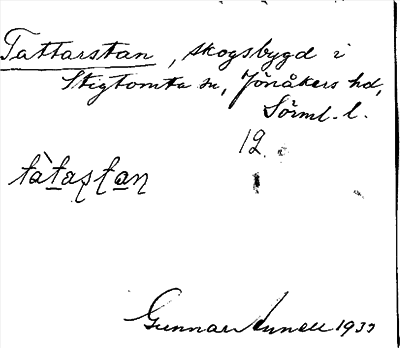 Tattarstan, skogsbygd i
Stigtomta sn, Jönåkers hd,
Sörml. l.
12.
tàtastan
Gunnar Annell 1937